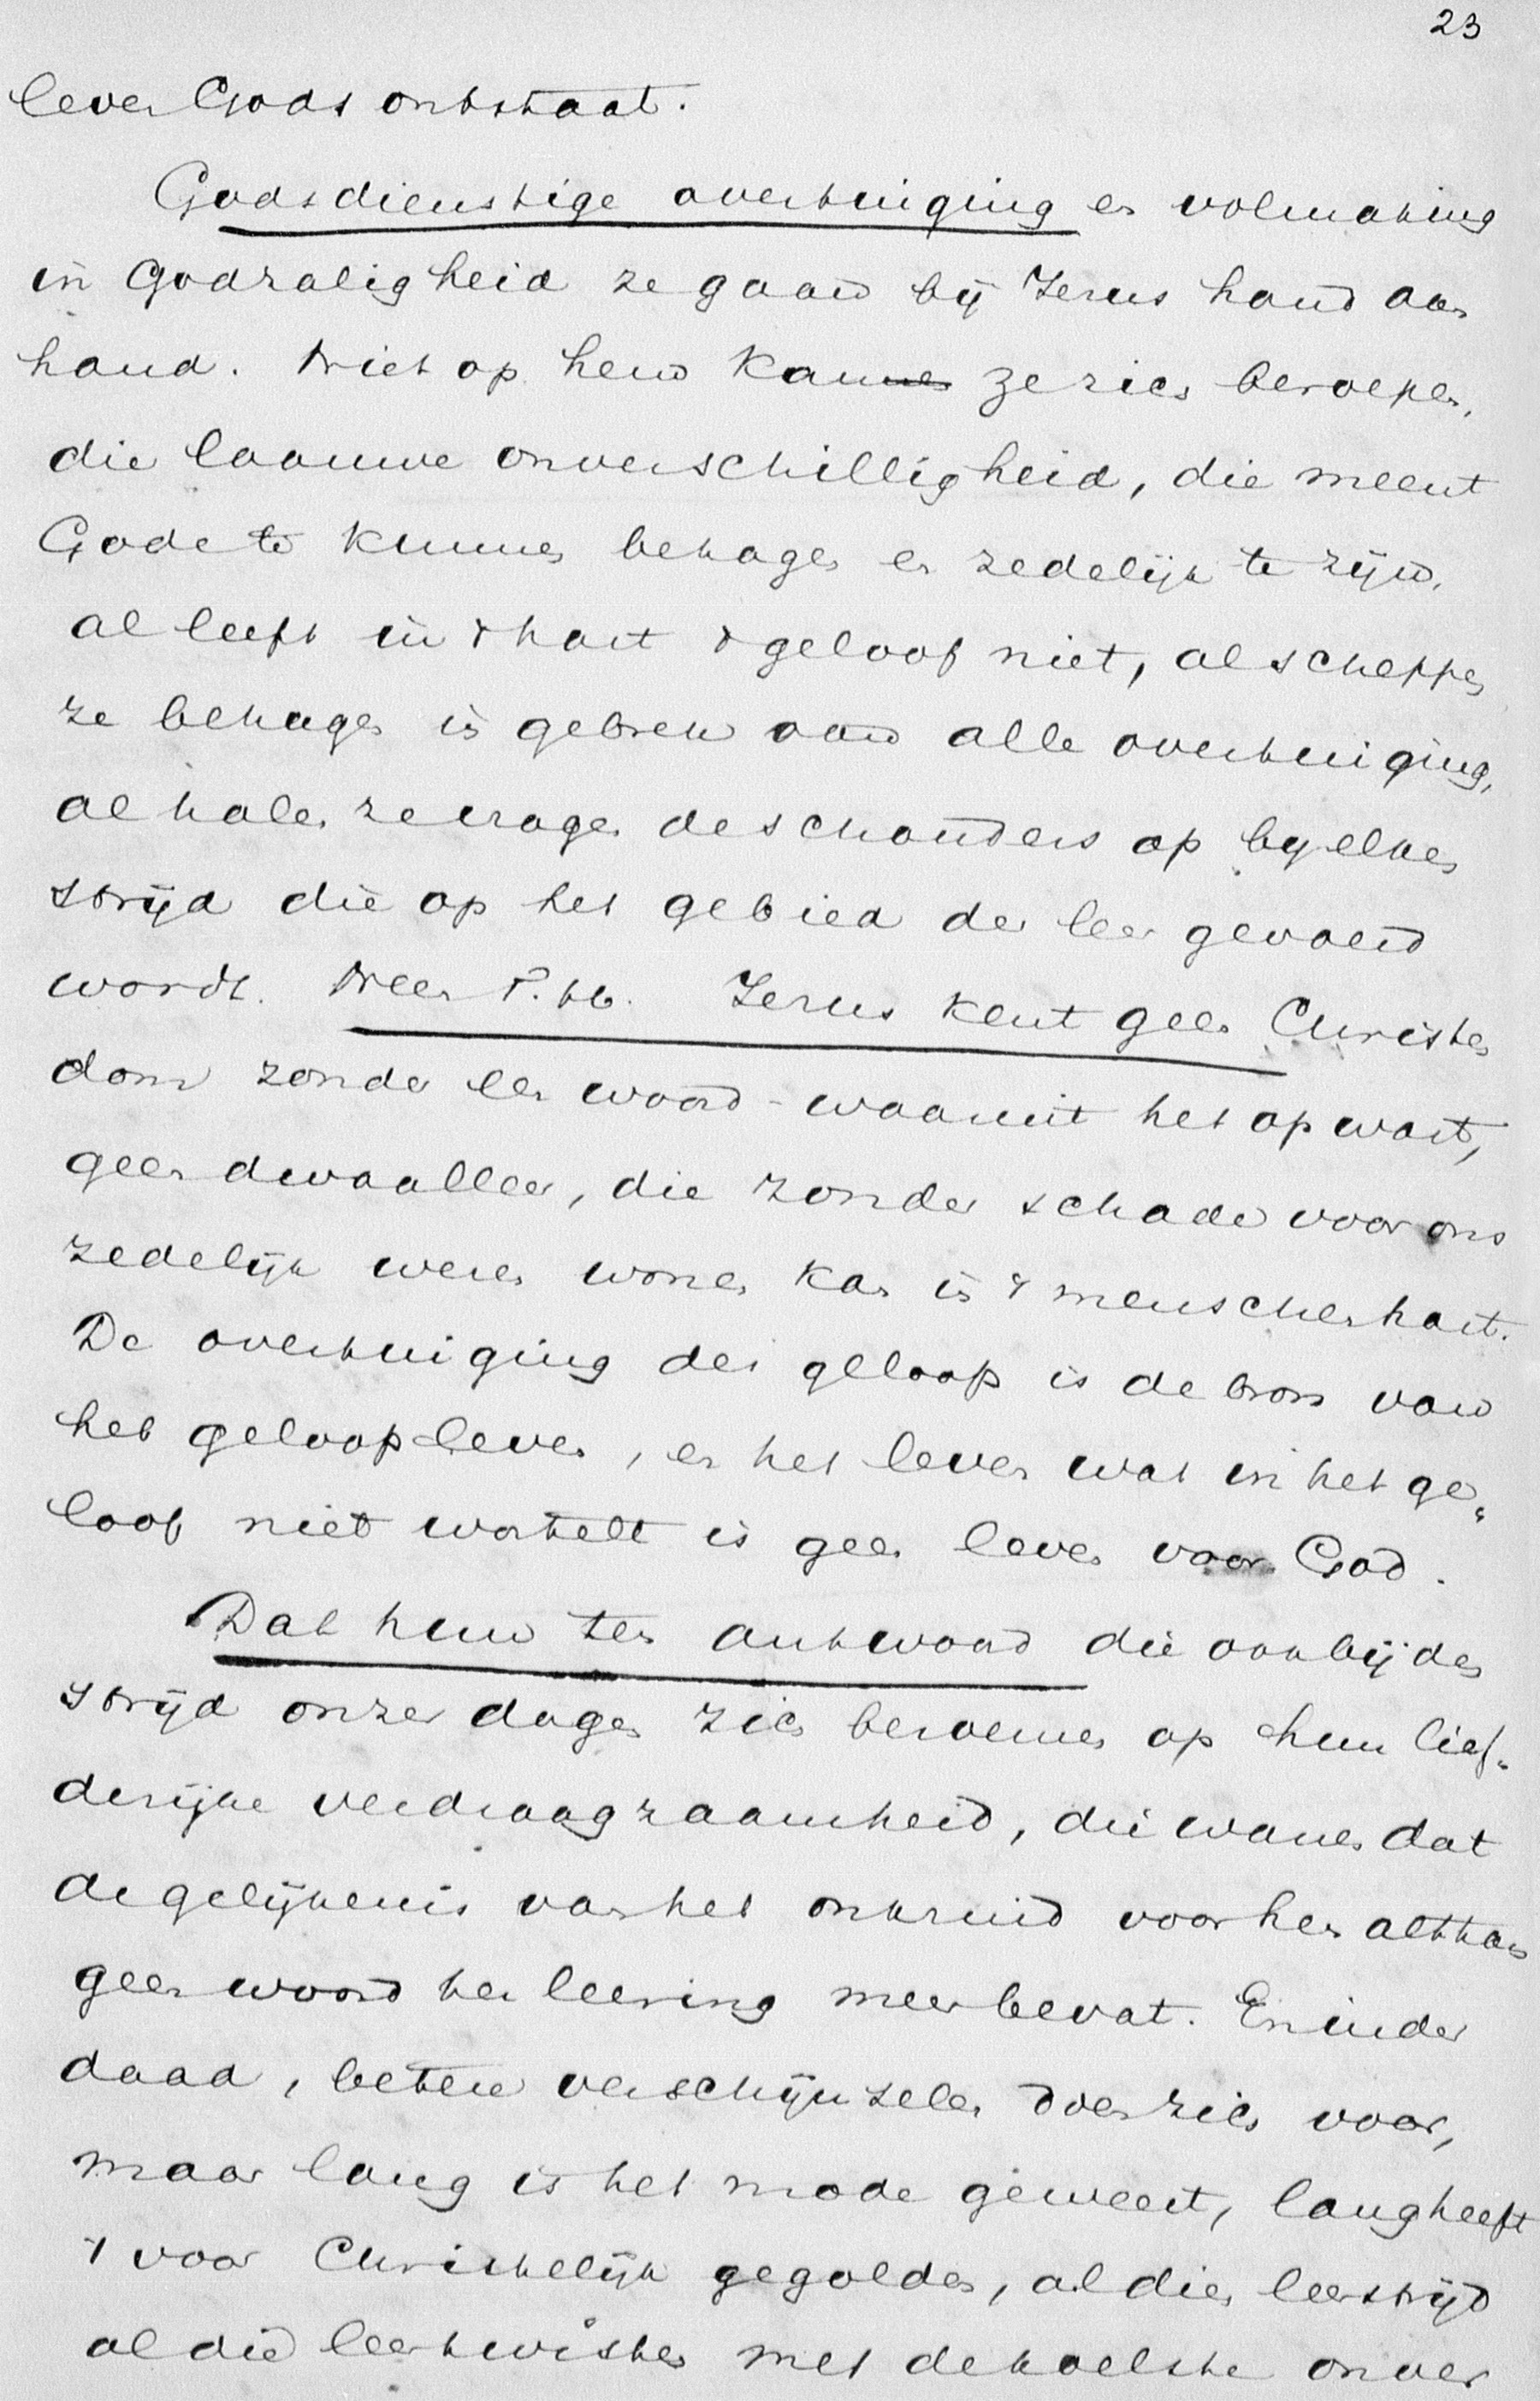 23
leven Gods ontstaat.
Godsdienstige overtuiging en volmaking
in Godzaligheid ze gaan bij Jezus hand aan
hand. Niet op hem kan ze zich beroepen,
die laauwe onverschilligheid, die meent
Gode te kunnen behagen en zedelijk te zijn,
al leeft in 't hart 't geloof niet, al scheppen
ze behagen in gebrek aan alle overtuiging,
al halen ze de schouders op bij elken
strijd die op het gebied der leer gevoerd
wordt. Neen Jezus kent geen Christen
dom zonder een woord waaruit het opwast,
geen dwaalleer, die zonder schade voor ons
zedelijk wezen wonen kan in 't menschenhart.
De overtuiging des geloofs is de bron van
het geloofsleven, en het leven wat in het ge„
loof niet wortelt is geen leven voor God.
Dat hun ten antwoord die ook bij den
strijd onzer dagen zich beroemen op hun lief„
derijke verdraagzaamheid, die wanen dat
de gelijkenis van het onkruid voor hen althans
geen woord ter leering meer bevat. En inder
daad, betere verschijnselen doen zich voor,
maar lang is het mode geweest, lang heeft
't voor Christelijk gegolden, al dien leerstrijd
al die leertwisten met de koelste onver